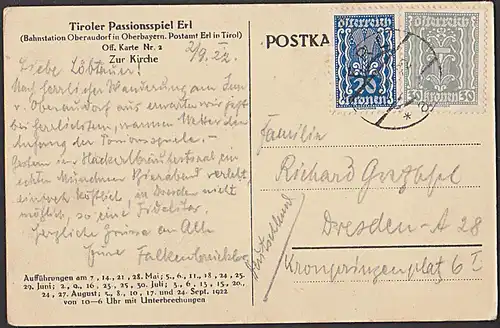 Tiroler Passionsspiel Erl
(Bahnstation Oberaudorf in Oberbayern. Postamt Erl in Tirol)
Off. Karte Nr. 2
Zur Kirche
2/9. 22.
POSTKA
österreich
20
kronen
österreich
50 kronen 50
Liebe Löbtauer!
Nach herrlicher Wanderung am Inn
v. Oberaudorf aus erwarten wir jetzt
bei herrlichstem, warmen Wetter den
Anfang der Passionsspiele. –
Gestern im Mathäserbräu
echten Münchner Bierabend verlebt,
köstlich, in Dresden nicht
möglich, so eine Fidelitas.
Herzliche Grüsse an Alle
Familie
Richard
Dresden-A 28
Kronprinzenplatz 6 I
Deutschland
Aufführungen am 7., 14., 21., 28. Mai; 5., 6., 11., 18., 24., 25.
29. Juni; 2., 9., 16., 23., 25., 30. Juli; 3., 6., 13., 15., 20.,
24., 27. August; 2., 8., 10., 17. und 24. Sept. 1922
von 10–6 Uhr mit Unterbrechungen